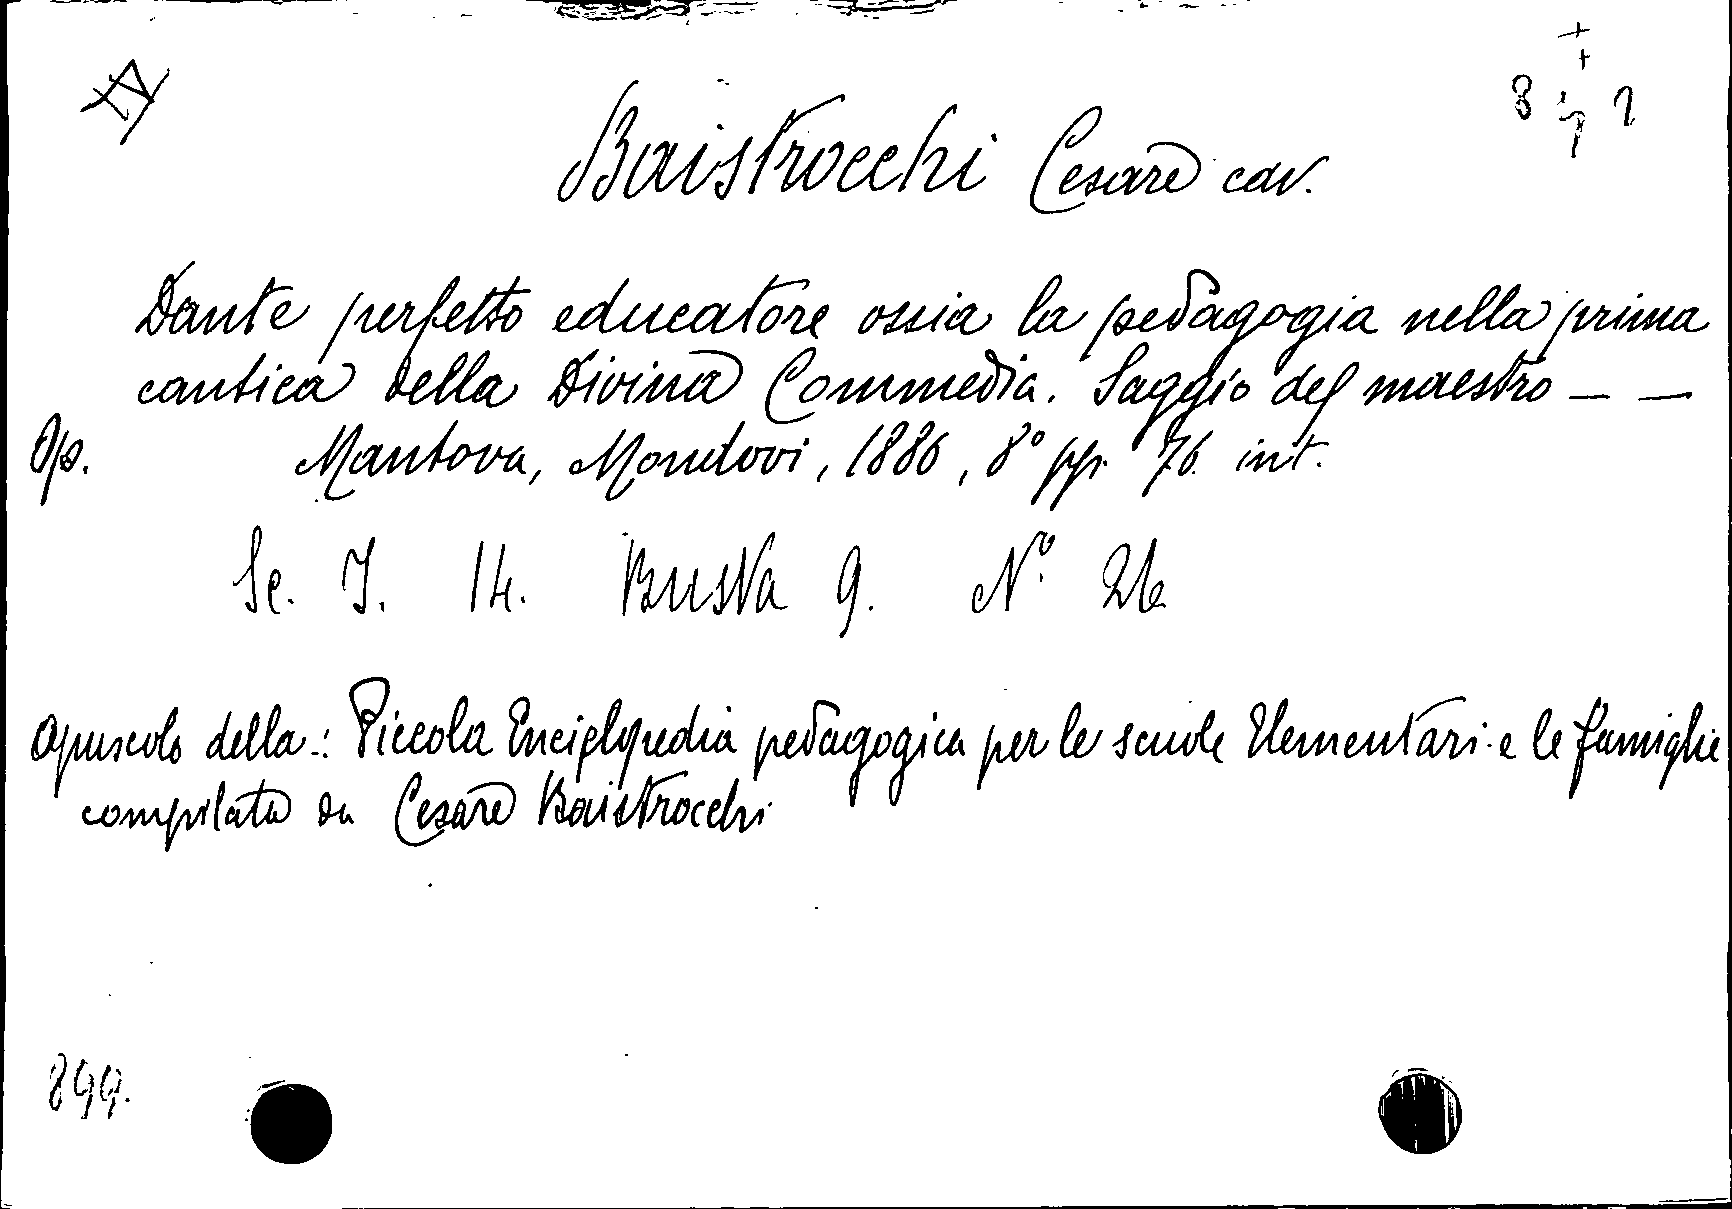 Baistrocchi Cesare cav.
Dante perfetto educatore ossia la pedagogia nella prima
cantica della Divina Commedia. Saggio del maestro — —
Op. Mantova, Mondovi, 1886, 8° pp. 76. int.
Se. I. 14. Busta 9. N.° 26
opuscolo della: Piccola Enciclopedia pedagogica per le scuole Elementari e le famiglie
compilata da Cesare Baistrocchi
899.